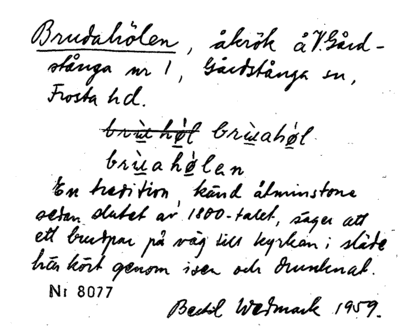 Brudahölen, åkrök å V. Gård-
stånga nr 1, Gårdstånga sn,
Frosta hd.
brùahǿl brùahǿl
brùahǿlen
En tradition känd åtminstone
sedan slutet av 1800-talet, säger att
ett brudpar på väg till kyrkan i släde
här kört genom isen och drunknat.
Nr 8077
Bertil Wedmark 1959.